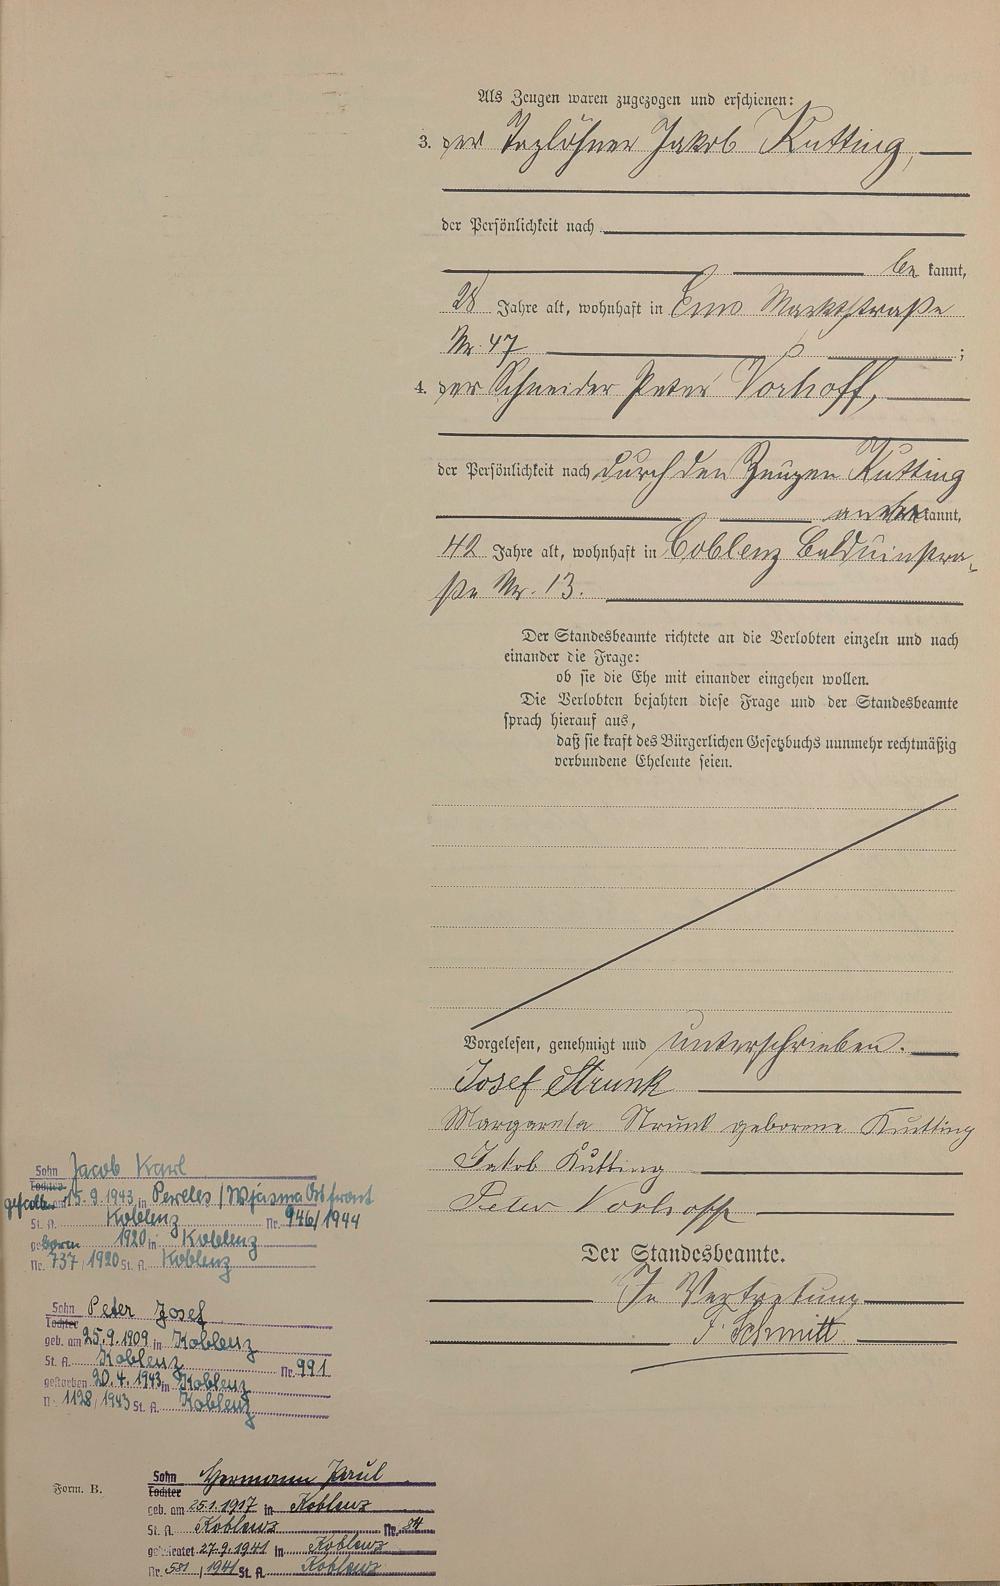 Als Zeugen waren zugezogen und erschienen:
3. der Taglöhner Jakob Kutting,
der Persönlichkeit nach
be kannt,
28 Jahre alt, wohnhaft in Ems Marktstraße
Nr. 47 ;
4. der Schneider Peter Vorhoff,
der Persönlichkeit nach durch den Zeugen Kutting
aner kannt,
42 Jahre alt, wohnhaft in Coblenz Balduinstra-
ße Nr. 13.
Der Standesbeamte richtete an die Verlobten einzeln und nach
einander die Frage:
ob sie die Ehe mit einander eingehen wollen.
Die Verlobten bejahten diese Frage und der Standesbeamte
sprach hierauf aus,
daß sie kraft des Bürgerlichen Gesetzbuchs nunmehr rechtmäßig
verbundene Eheleute seien.
Vorgelesen, genehmigt und unterschrieben.
Josef Strunk
Margareta Strunk geborene Kutting
Jakob Kutting
Peter Vorhoff
Der Standesbeamte.
In Vertretung
F. Schmitt
Sohn Jacob Karl
Tochter
gefallen am 15.9.1943 in Pereles / Wjasma Ostfront
St. A. Koblenz Nr. 946/1944
geboren 1920 in Koblenz
Nr. 737/1920 St. A. Koblenz
Sohn Peter Josef
Tochter
geb. am 25.9.1909 in Koblenz
St. A. Koblenz Nr. 991
gestorben 20.4.1943 in Koblenz
Nr. 1128/1943 St. A. Koblenz
Form. B.
Sohn Hermann Paul
Tochter
geb. am 25.1.1917 in Koblenz
St. A. Koblenz Nr. 84
geheiratet 27.9.1941 in Koblenz
Nr. 581/1941 St. A. Koblenz